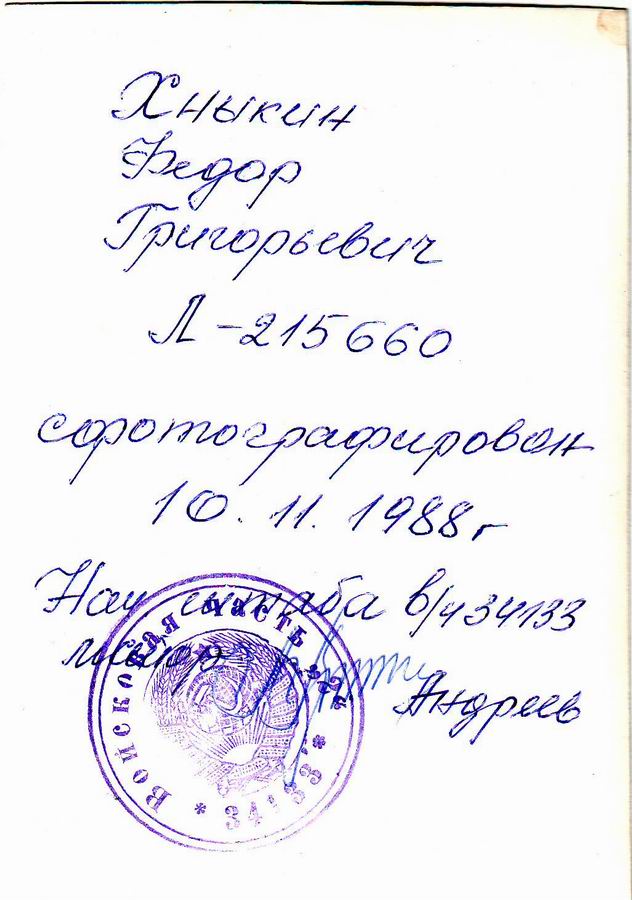 Хныкин
Федор
Григорьевич
Л-215660
сфотографирован
10.11.1988г
Нач штаба в/ч 34133
майор
Андреев
Войсковая часть
* 34133 *